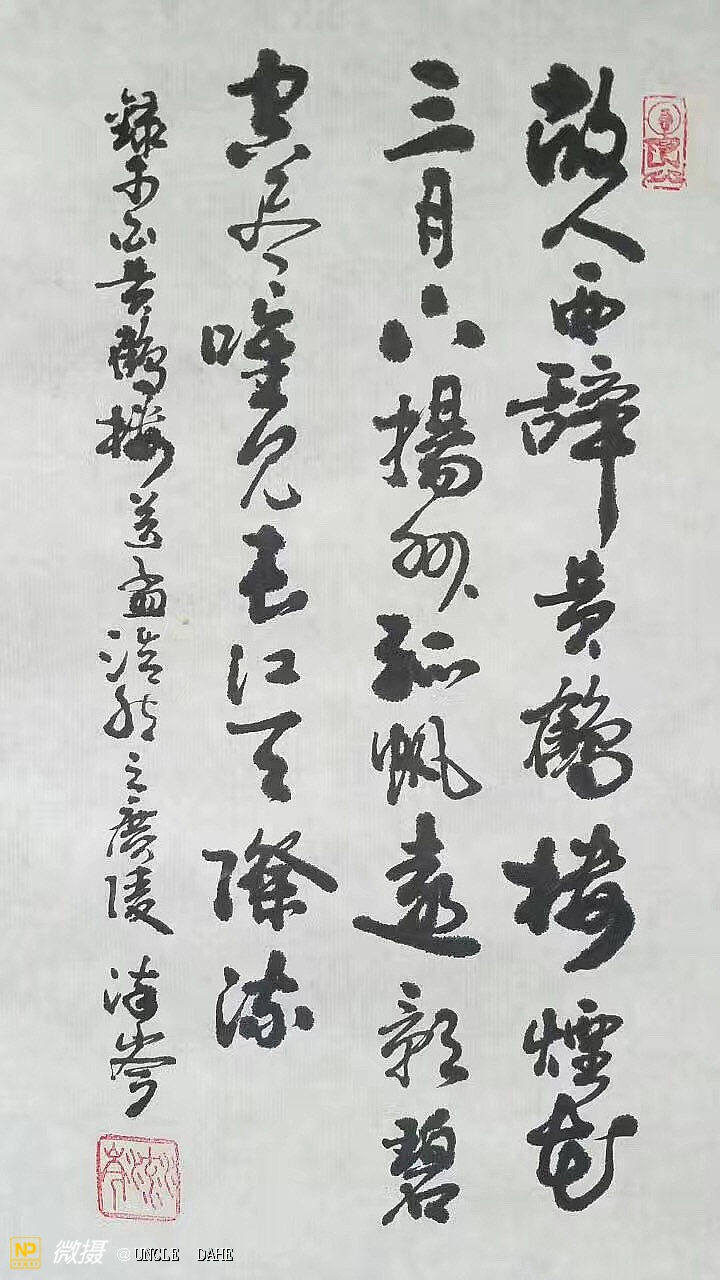 故人西辞黄鶴楼煙花
三月下揚州孤帆遠影碧
空尽唯见長江天際流
録李白黄鶴楼送孟浩然之廣陵
NP 微摄 @UNCLE DAHE